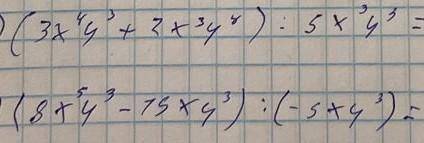 ) (3x⁴y³ + 2x³y⁴) : 5x³y³ =
) (8x⁵y³ - 15xy³) : (-5xy³) =